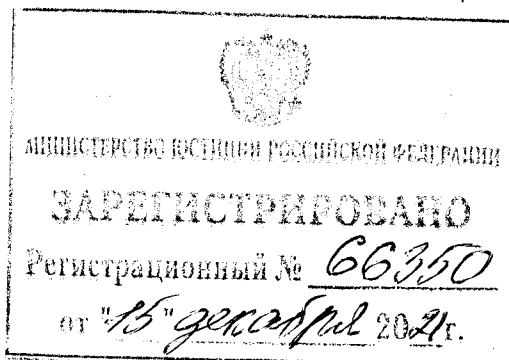 МИНИСТЕРСТВО ЮСТИЦИИ РОССИЙСКОЙ ФЕДЕРАЦИИ
ЗАРЕГИСТРИРОВАНО
Регистрационный № 66350
от "15" декабря 2021г.